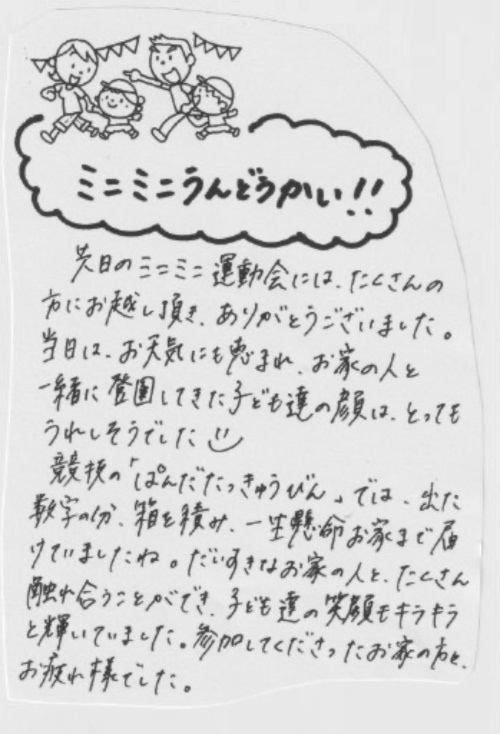 ミニミニうんどうかい!!
先日のミニミニ運動会には、たくさんの
方にお越し頂き、ありがとうございました。
当日は、お天気にも恵まれ、お家の人と
一緒に登園してきた子ども達の顔は、とっても
うれしそうでした
競技の「ぱんだたっきゅうびん」では、出た
数字の分、箱を積み、一生懸命お家まで届
けていましたね。だいすきなお家の人と、たくさん
触れ合うことができ、子ども達の笑顔もキラキラ
と輝いていました。参加してくださったお家の方々、
お疲れ様でした。